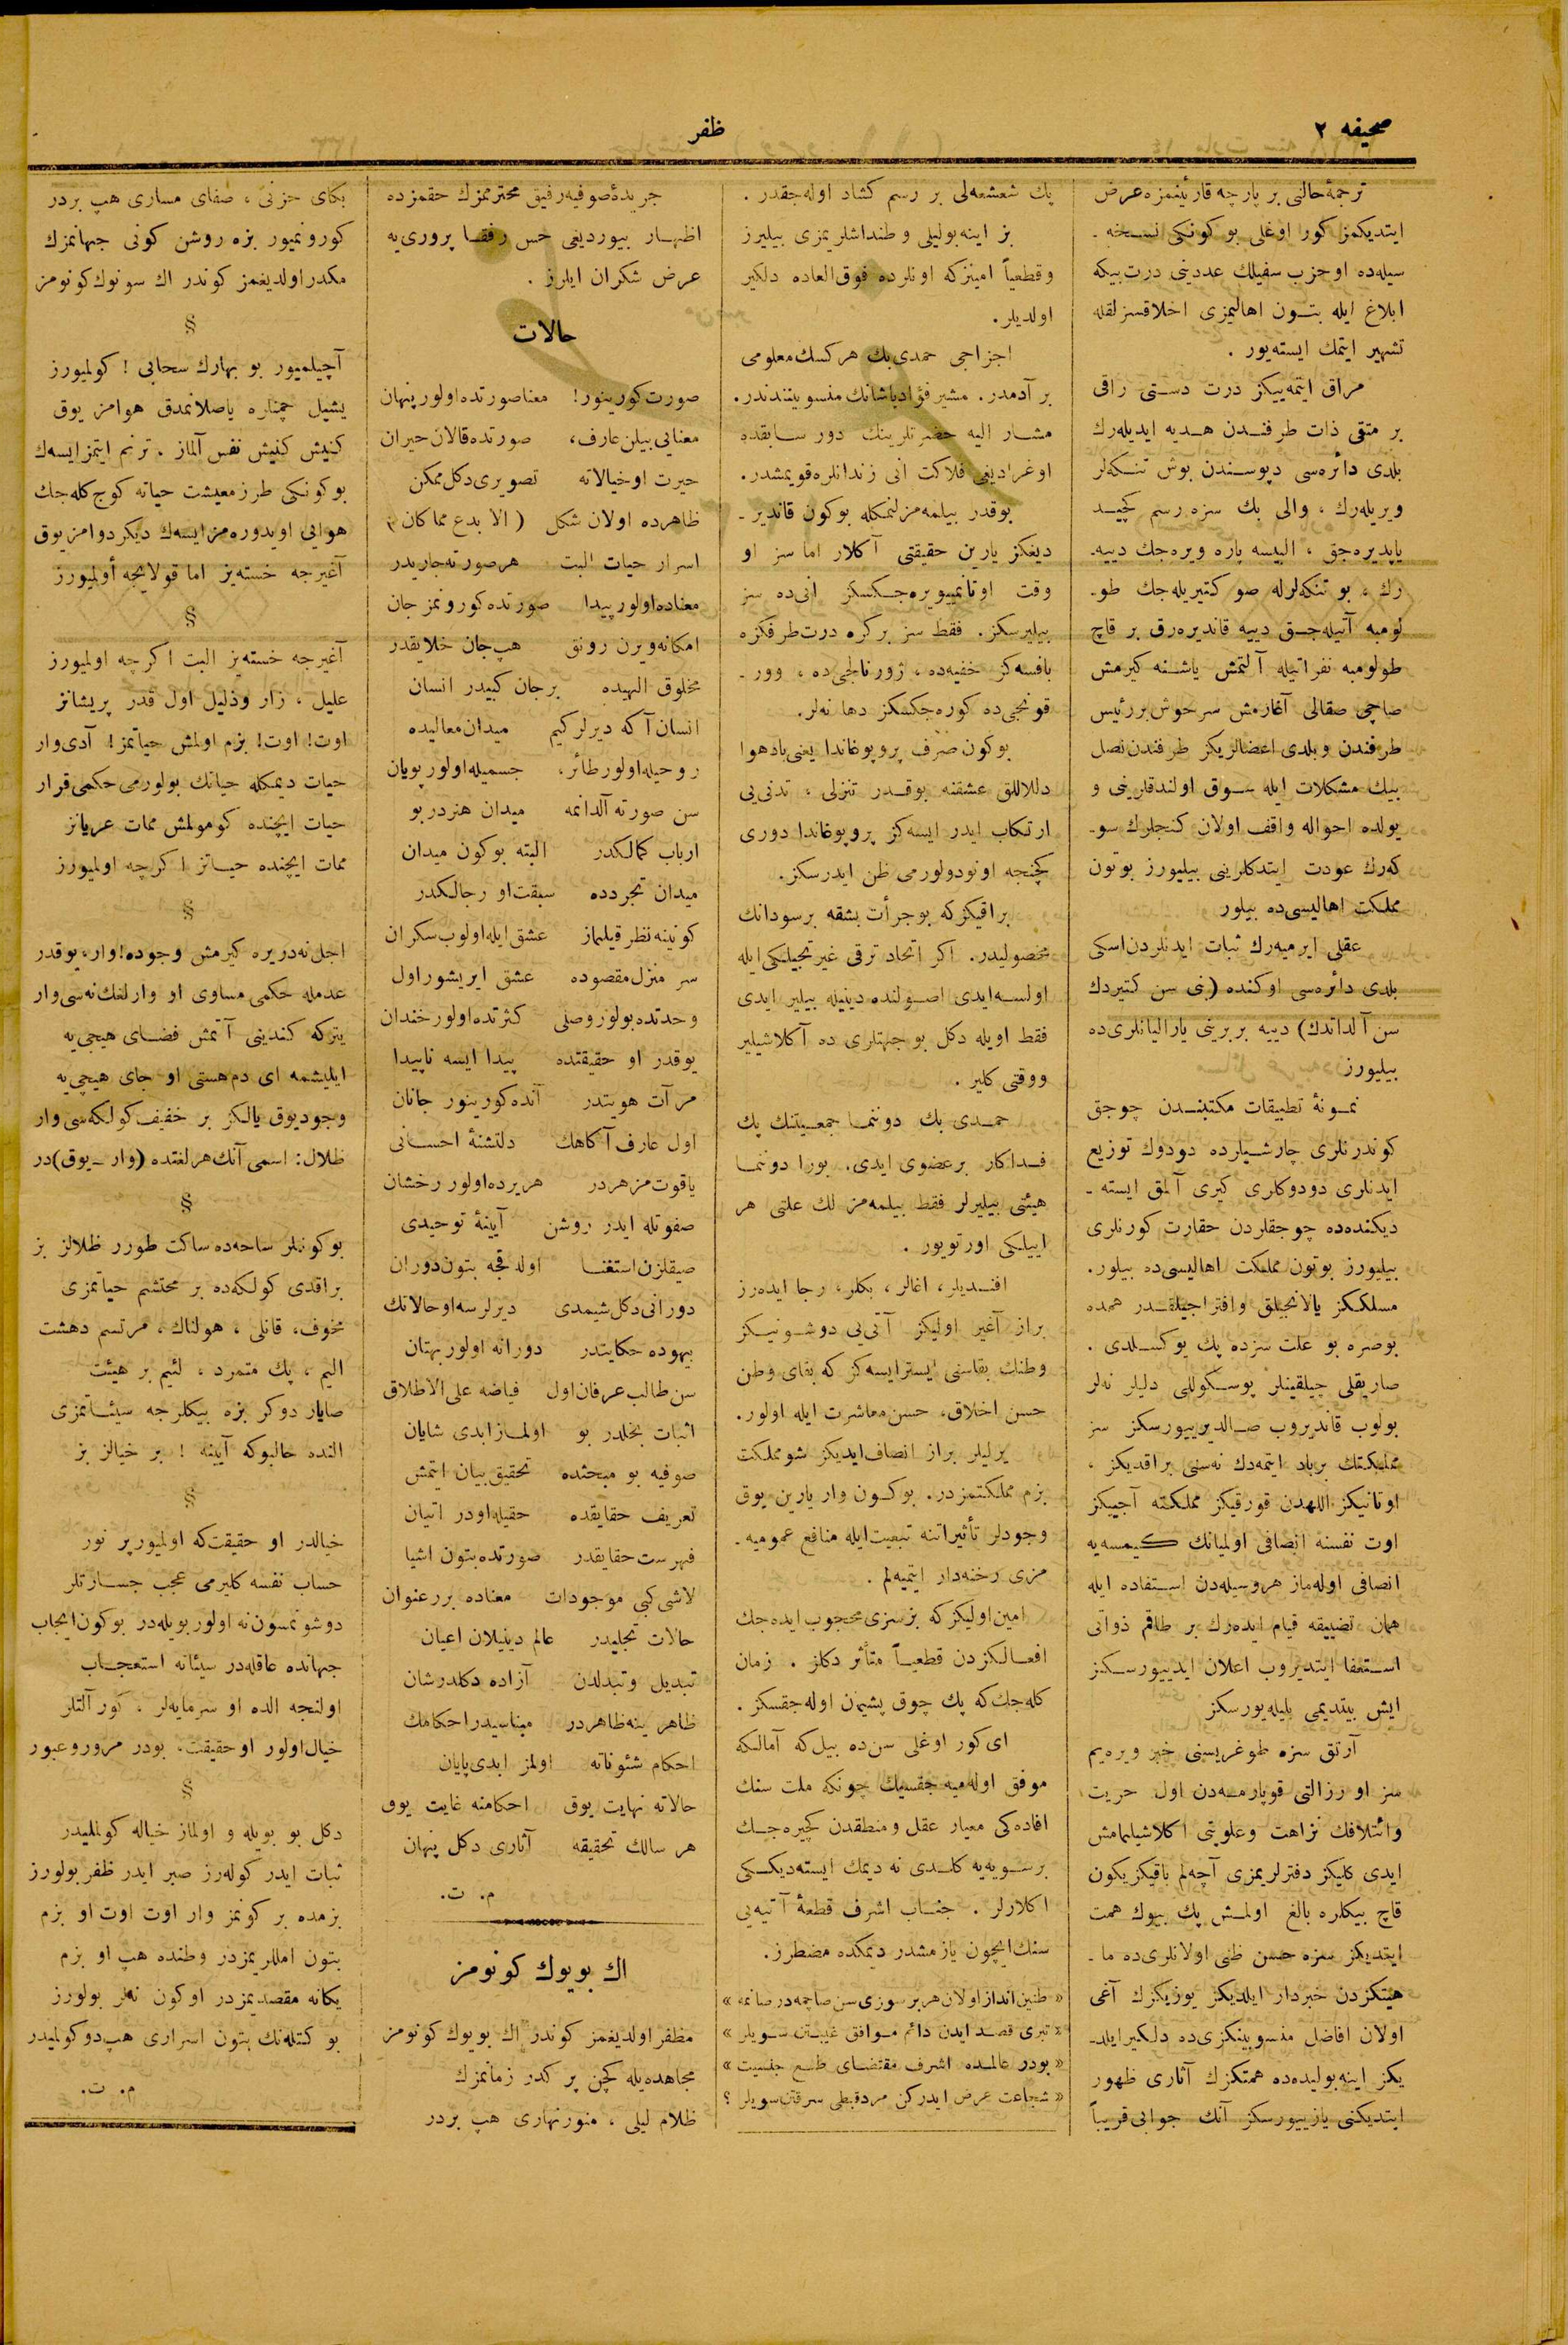 صحیفه ٢
ظفر
ترجمهٔ حالنی بر پارچه قارئینمزه عرض
ایتدیکمز کور اوغلی بو کونکی نسخه ـ
سیله ده اوحزب سفیلك عددینی درت بیکه
ابلاغ ایله بتون اهالیمزی اخلاقسزلقله
تشهیر ایتمك ایسته یور .
مراق ایتمه ییکز درت دستی راقی
بر متقی ذات طرفندن هدیه ایدیله رك
بلدی دائره سی دپوسندن بوش تنکه لر
ویریله رك ، والی بك سزه رسم کچید
یاپدیره جق ، البسه پاره ویره جك دییه ـ
رك ، بو تنکه لرله صو کتیریله جك طو ـ
لومبه آتیله جق دییه قاندیره رق بر قاچ
طولومبه نفراتیله آلتمش یاشنه کیرمش
صاچی صقالی آغارمش سرخوش بر رئیس
طرفندن و بلدی اعضالریکز طرفندن نصل
بیك مشکلات ایله سوق اولندقلرینی و
یولده احواله واقف اولان کنجلرك سو ـ
که رك عودت ایتدکلرینی بیلیورز بوتون
مملکت اهالیسی ده بیلور
عقلی ایرمیه رك ثبات ایدنلردن اسکی
بلدی دائره سی اوکنده (بنی سن کتیردك
سن آلداتدك) دییه بربرینی یارالیانلری ده
بیلیورز
نمونهٔ تطبیقات مکتبندن چوجق
کوندرنلری چارشیلرده دودوك توزیع
ایدنلری دودوکلری کیری آلمق ایسته ـ
دیکنده ده چوجقلردن حقارت کورنلری
بیلیورز بوتون مملکت اهالیسی ده بیلور .
مسلککز یالانجیلق وافتراجیلقدر همده
بوصره بو علت سزده پك یوکسلدی .
صاریقلی چیلقینلر پوسکوللی دلیلر نه لر
بولوب قاندیروب صالدیرییورسکز سز
مملکتك برباد ایتمه دك نه سنی براقدیکز ،
اوتانیکز اللهدن قورقیکز مملکته آجییکز
اوت نفسنه انصافی اولمیانك کیمسه یه
انصافی اوله ماز هروسیله دن استفاده ایله
همان تضییقه قیام ایده رك بر طاقم ذواتی
استعفا ایتدیروب اعلان ایدییورسکز
ایش بیتدیمی بیلیه یورسکز
آرتق سزه طوغریسنی خبر ویره یم
سز او رزالتی قوپارمه دن اول حریت
وائتلافك نزاهت وعلویتی اکلاشیلمامش
ایدی کلیکز دفترلریمزی آچه لم باقیکز یکون
قاچ بیکلره بالغ اولمش پك بیوك همت
ایتدیکز سزه حسن ظنی اولانلری ده ما ـ
هیتکزدن خبردار ایلدیکز یوزیکزك آغی
اولان افاضل منسوبینکزی ده دلکیر ایلد ـ
یکز اینه بولیده ده همتکزك آثاری ظهور
ایتدیکنی یازییورسکز آنك جوابی قریباً
پك شعشعه لی بر رسم کشاد اوله جقدر .
بز اینه بولیلی وطنداشلریمزی بیلیرز
وقطعیاً امینزکه اونلرده فوق العاده دلکیر
اولدیلر .
اجزاجی حمدی بك هرکسك معلومی
بر آدمدر . مشیر فؤاد پاشانك منسوبیندندر .
مشار الیه حضرتلرینك دور سابقده
اوغرادیغی فلاکت انی زندانلره قویمشدر .
بوقدر بیلمه مزلنمکله بوکون قاندیر ـ
دیغکز یارین حقیقتی آکلار اما سز او
وقت اوتانمییویره جکسکز انی ده سز
بیلیرسکز . فقط سز برکره درت طرفکزه
باقسه کز خفیه ده ، ژورنالجی ده ، وور ـ
قونجی ده کوره جکسکز دها نه لر .
بوکون صرف پروپوغاندا یعنی بادهوا
دللاللق عشقنه بوقدر تنزلی ، تدنی یی
ارتکاب ایدر ایسه کز پروپوغاندا دوری
کچنجه اونودولورمی ظن ایدرسکز .
براقیکزکه بو جرأت بشقه برسودانك
محصولیدر . اکر اتحاد ترقی غیرتجیلکی ایله
اولسه ایدی اصولنده دینیله بیلیر ایدی
فقط اویله دکل بو جهتلری ده آکلاشیلیر
ووقتی کلیر .
حمدی بك دوننما جمعیتنك پك
فداکار برعضوی ایدی . بورا دوننما
هیئتی بیلیرلر فقط بیلمه مزلك علتی هر
اییلکی اورتویور .
افندیلر ، اغالر ، بکلر ، رجا ایده رز
براز آغیر اولیکز آتی یی دوشونیکز
وطنك بقاسنی ایسترایسه کز که بقای وطن
حسن اخلاق ، حسن معاشرت ایله اولور .
یرلیلر براز انصاف ایدیکز شو مملکت
بزم مملکتمزدر . بوکون وار یارین یوق
وجودلر تأثیراتنه تبعیت ایله منافع عمومیه ـ
مزی رخنه دار ایتمیه لم .
امین اولیکزکه بزسزی محجوب ایده جك
افعالکزدن قطعیاً متأثر دکلز . زمان
کله جك که پك چوق پشیمان اوله جقسکز .
ای کور اوغلی سن ده بیل که آمالکه
موفق اوله میه جقسیك چونکه ملت سنك
افاده کی معیار عقل ومنطقدن کچیره جك
برسویه یه کلدی نه دیمك ایسته دیککی
اکلارلر . جناب اشرف قطعهٔ آتیه یی
سنك ایچون یازمشدر دیمکده مضطرز .
« طنین انداز اولان هربرسوزی سن صاچمه در صانمه »
« تبری قصد ایدن دائم موافق غیبتن سویلر »
« بودر عالمده اشرف مقتضای طبع جنسیت »
« شجاعت عرض ایدرکن مردقبطی سرقتن سویلر ؟
جریدهٔ صوفیه رفیق محترممزك حقمزده
اظهار بیوردیغی حس رفقا پروری یه
عرض شکران ایلرز .
حالات
صورت کورینور ! معناصورتده اولورپنهان
معنایی بیلن عارف ، صورتده قالان حیران
حیرت اوخیالاته تصویری دکل ممکن
ظاهرده اولان شکل ( الا بدع مما کان )
اسرار حیات البت هرصورته جاریدر
معناده اولور پیدا صورتده کورونمز جان
امکانه ویرن رونق هپ جان خلایقدر
مخلوق الهیده برجان کبیدر انسان
انسان آکه دیرلرکیم میدان معالیده
روحیله اولور طائر ، جسمیله اولور پویان
سن صورته آلدانمه میدان هنردر بو
ارباب کمالکدر البته بوکون میدان
میدان تجردده سبقت او رجالکدر
کونینه نظر قیلماز عشق ایله اولوب سکران
سر منزل مقصوده عشق ایریشور اول
وحدتده بولور وصلی کثرتده اولور خندان
یوقدر او حقیقتده پیدا ایسه ناپیدا
مرآت هویتدر آنده کورینور جانان
اول عارف آکاهك دلتشنهٔ احسانی
یاقوت مزهردر هریرده اولور رخشان
صفوتله ایدر روشن آیینهٔ توحیدی
صیقلزن استغنا اولدقجه بتون دوران
دورانی دکل شیمدی دیرلرسه اوحالاتك
بیهوده حکایتدر دورانه اولور بهتان
سن طالب عرفان اول فیاضه علی الاطلاق
اثبات بخلدر بو اولماز ابدی شایان
صوفیه بو مبحثده تحقیق بیان ایتمش
تعریف حقایقده حقیله اودر اتیان
فهرست حقایقدر صورتده بتون اشیا
لاشی کبی موجودات معناده بررعنوان
حالات تجلیدر عالم دینیلان اعیان
تبدیل وتبدلدن آزاده دکلدرشان
ظاهر ینه ظاهردر مبناسیدر احکامك
احکام شئوناته اولمز ابدی پایان
حالاته نهایت یوق احکامنه غایت یوق
هر سالك تحقیقه آثاری دکل پنهان
م . ت .
اك بویوك کونومز
مظفر اولدیغمز کوندر اك بویوك کونومز
مجاهده یله کچن پر کدر زمانمزك
ظلام لیلی ، منور نهاری هپ بردر
بکای حزنی ، صفای مساری هپ بردر
کورونمیور بزه روشن کونی جهانمزك
مکدر اولدیغمز کوندر اك سونوك کونومز
§
آچیلمیور بو بهارك سحابی ! کولمیورز
یشیل چمنلره یاصلانمدق هوامز یوق
کنیش کنیش نفس آلماز . ترنم ایتمز ایسه ك
بوکونکی طرز معیشت حیاته کوج کله جك
هوایی اویدوره مز ایسه ك دیکر دوامز یوق
آغیرجه خسته یز اما قولایجه أولمیورز
§
آغیرجه خسته یز البت اکرچه اولمیورز
علیل ، زار وذلیل اول قدر پریشانز
اوت ! اوت ! بزم اولمش حیاتمز ! آدی وار
حیات دیمکله حیاتك بولورمی حکمی قرار
حیات ایچنده کومولمش ممات عریانز
ممات ایچنده حیاتز اکرچه اولمیورز
§
اجل نه دریره کیرمش وجوده ! وار ، یوقدر
عدمله حکمی مساوی او وارلغك نه سی وار
یترکه کندینی آتمش فضای هیچی یه
ایلیشمه ای دم هستی او جای هیچی یه
وجودیوق یالکز بر خفیف کولکه سی وار
ظلال : اسمی آنك هرلغتده (وار ـ یوق) در
§
بوکونلر ساحه ده ساکت طورر ظلالز بز
براقدی کولکه ده بر محتشم حیاتمزی
مخوف ، قانلی ، هولناك ، مرتسم دهشت
الیم ، پك متمرد ، لئیم بر هیئت
صایار دوکر بزه بیکلرجه سیئاتمزی
النده حالبوکه آیینه ! بر خیالز بز
§
خیالدر او حقیقت که اولمیور پر نور
حساب نفسه کلیرمی عجب جسارتلر
دوشونمسون نه اولور بویله در بوکون ایجاب
جهانده عاقله در سیئاته استعجاب
اولنجه الده او سرمایه لر ، کور آلتلر
خیال اولور او حقیقت . بودر مرور وعبور
§
دکل بو بویله و اولماز خیاله کولملیدر
ثبات ایدر کوله رز صبر ایدر ظفر بولورز
بزمده بر کونمز وار اوت اوت او بزم
بتون امللریمزدر وطنده هپ او بزم
یکانه مقصدیمزدر اوکون نه لر بولورز
بو کتله نك بتون اسراری هپ دوکولمیدر
م . ت .